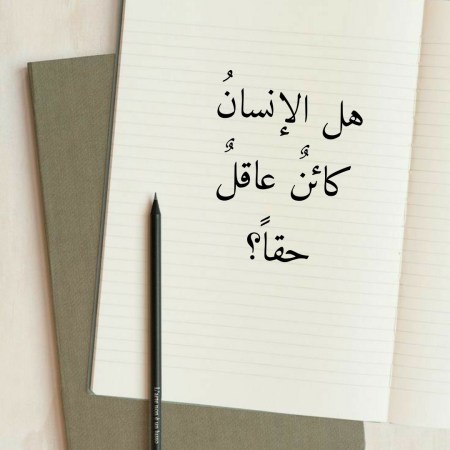 هل الإنسانُ
كائنٌ عاقلٌ
حقاً؟